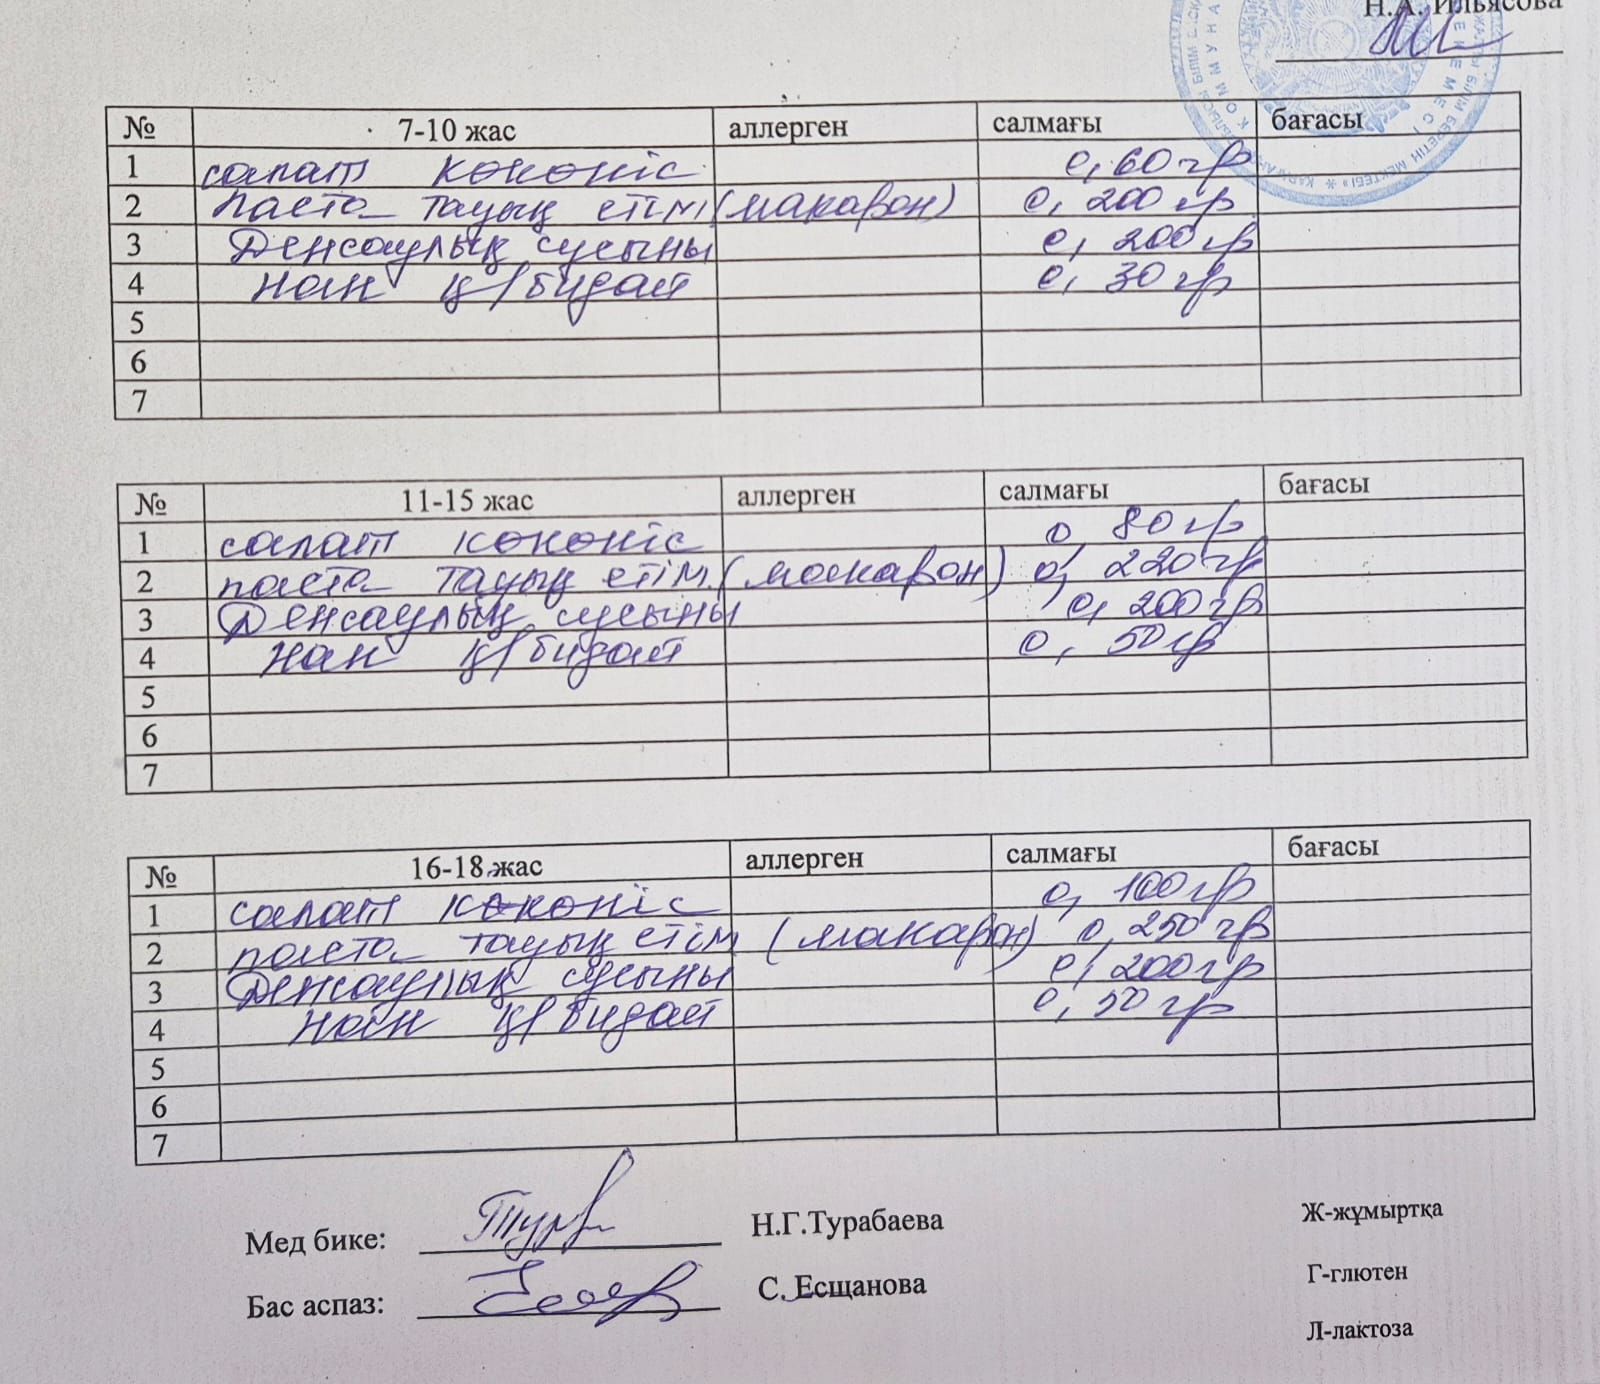 Н.А. Ильясова
№ 7-10 жас аллерген салмағы бағасы
1 салат көкөніс 0,60 гр
2 паста тауық етім (макарон) 0, 200 гр
3 Денсаулық сусыны 0, 200 гр
4 нан қ/бидай 0, 30 гр
5
6
7
№ 11-15 жас аллерген салмағы бағасы
1 салат көкөніс 0, 80 гр
2 паста тауық етім (макарон) 0, 220 гр
3 Денсаулық сусыны 0, 200 гр
4 нан қ/бидай 0, 50 гр
5
6
7
№ 16-18 жас аллерген салмағы бағасы
1 салат көкөніс 0, 100 гр
2 паста тауық етім (макарон) 0, 250 гр
3 Денсаулық сусыны 0, 200 гр
4 нан қ/бидай 0, 50 гр
5
6
7
Мед бике: Н.Г.Турабаева
Бас аспаз: С. Есщанова
Ж-жұмыртқа
Г-глютен
Л-лактоза